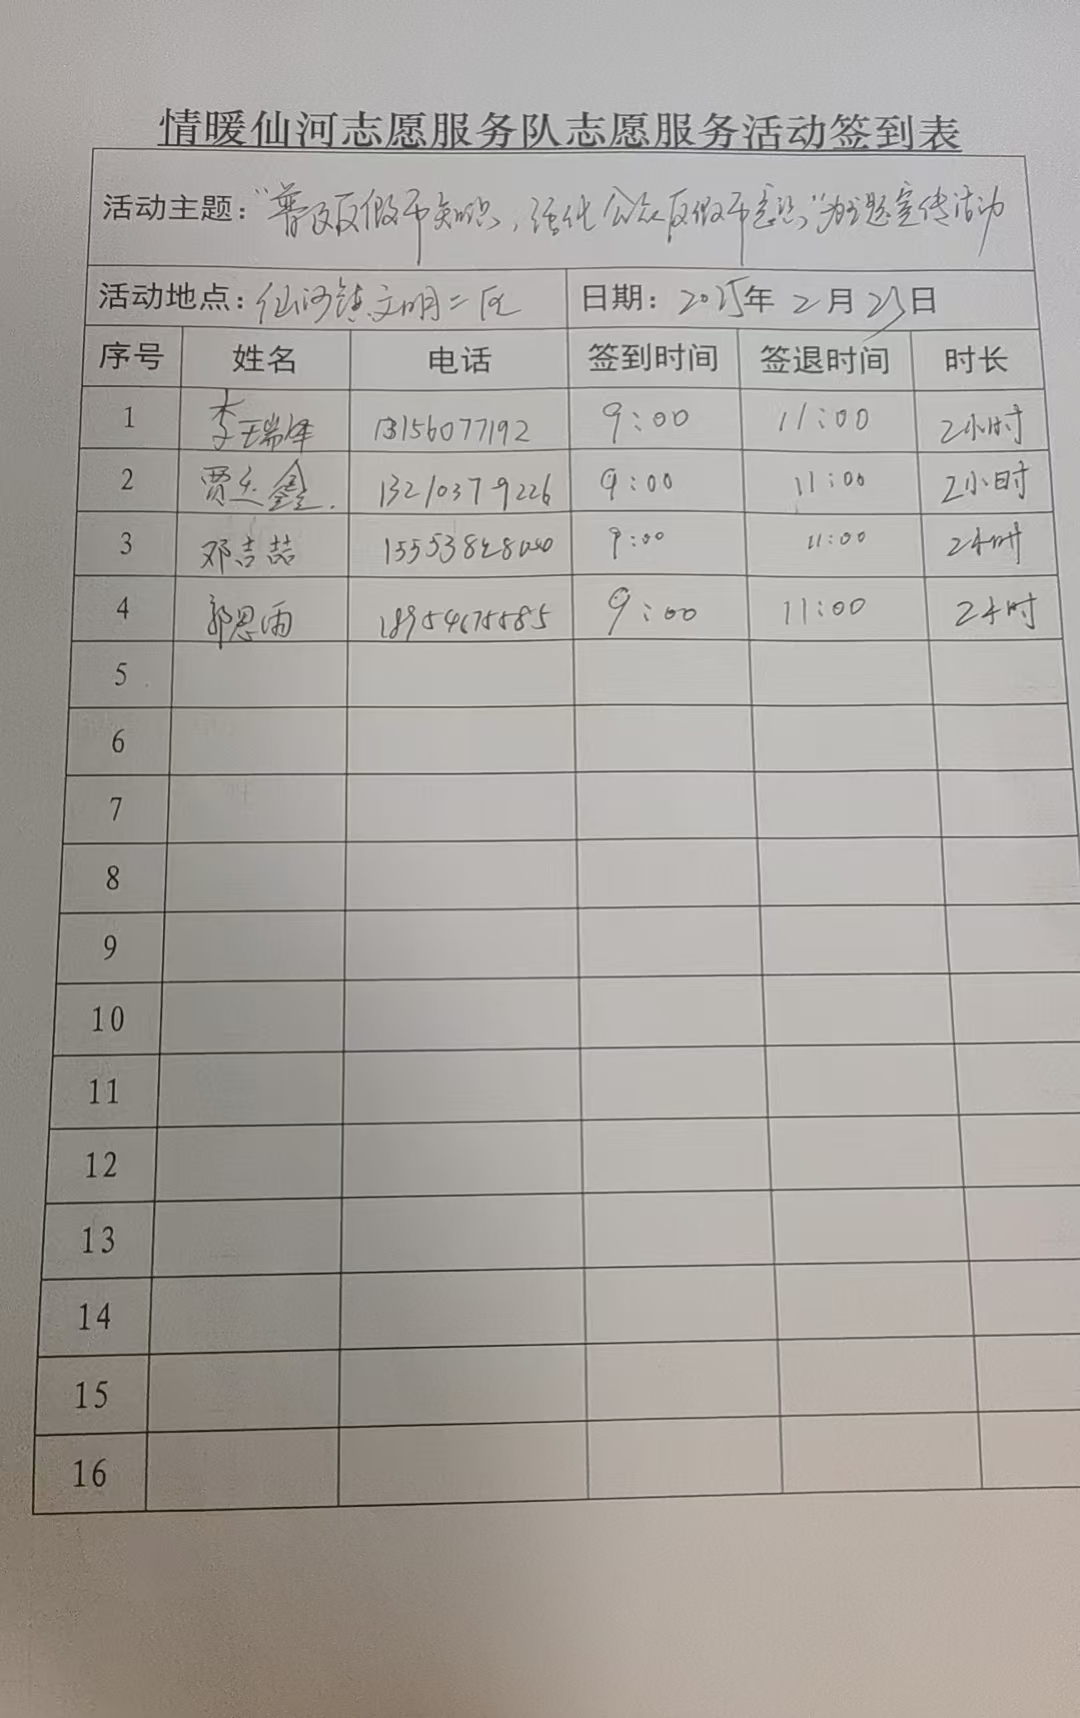 情暖仙河志愿服务队志愿服务活动签到表
活动主题：“普及反假币知识，强化公众反假币意识”为主题宣传活动
活动地点：仙河镇文明二区 日期：2025年2月23日
序号 姓名 电话 签到时间 签退时间 时长
1 李瑞泽 13156077192 9:00 11:00 2小时
2 贾 鑫 13210379226 9:00 11:00 2小时
3 邓吉喆 9:00 11:00 2小时
4 郭恩雨 18954675585 9:00 11:00 2小时
5
6
7
8
9
10
11
12
13
14
15
16